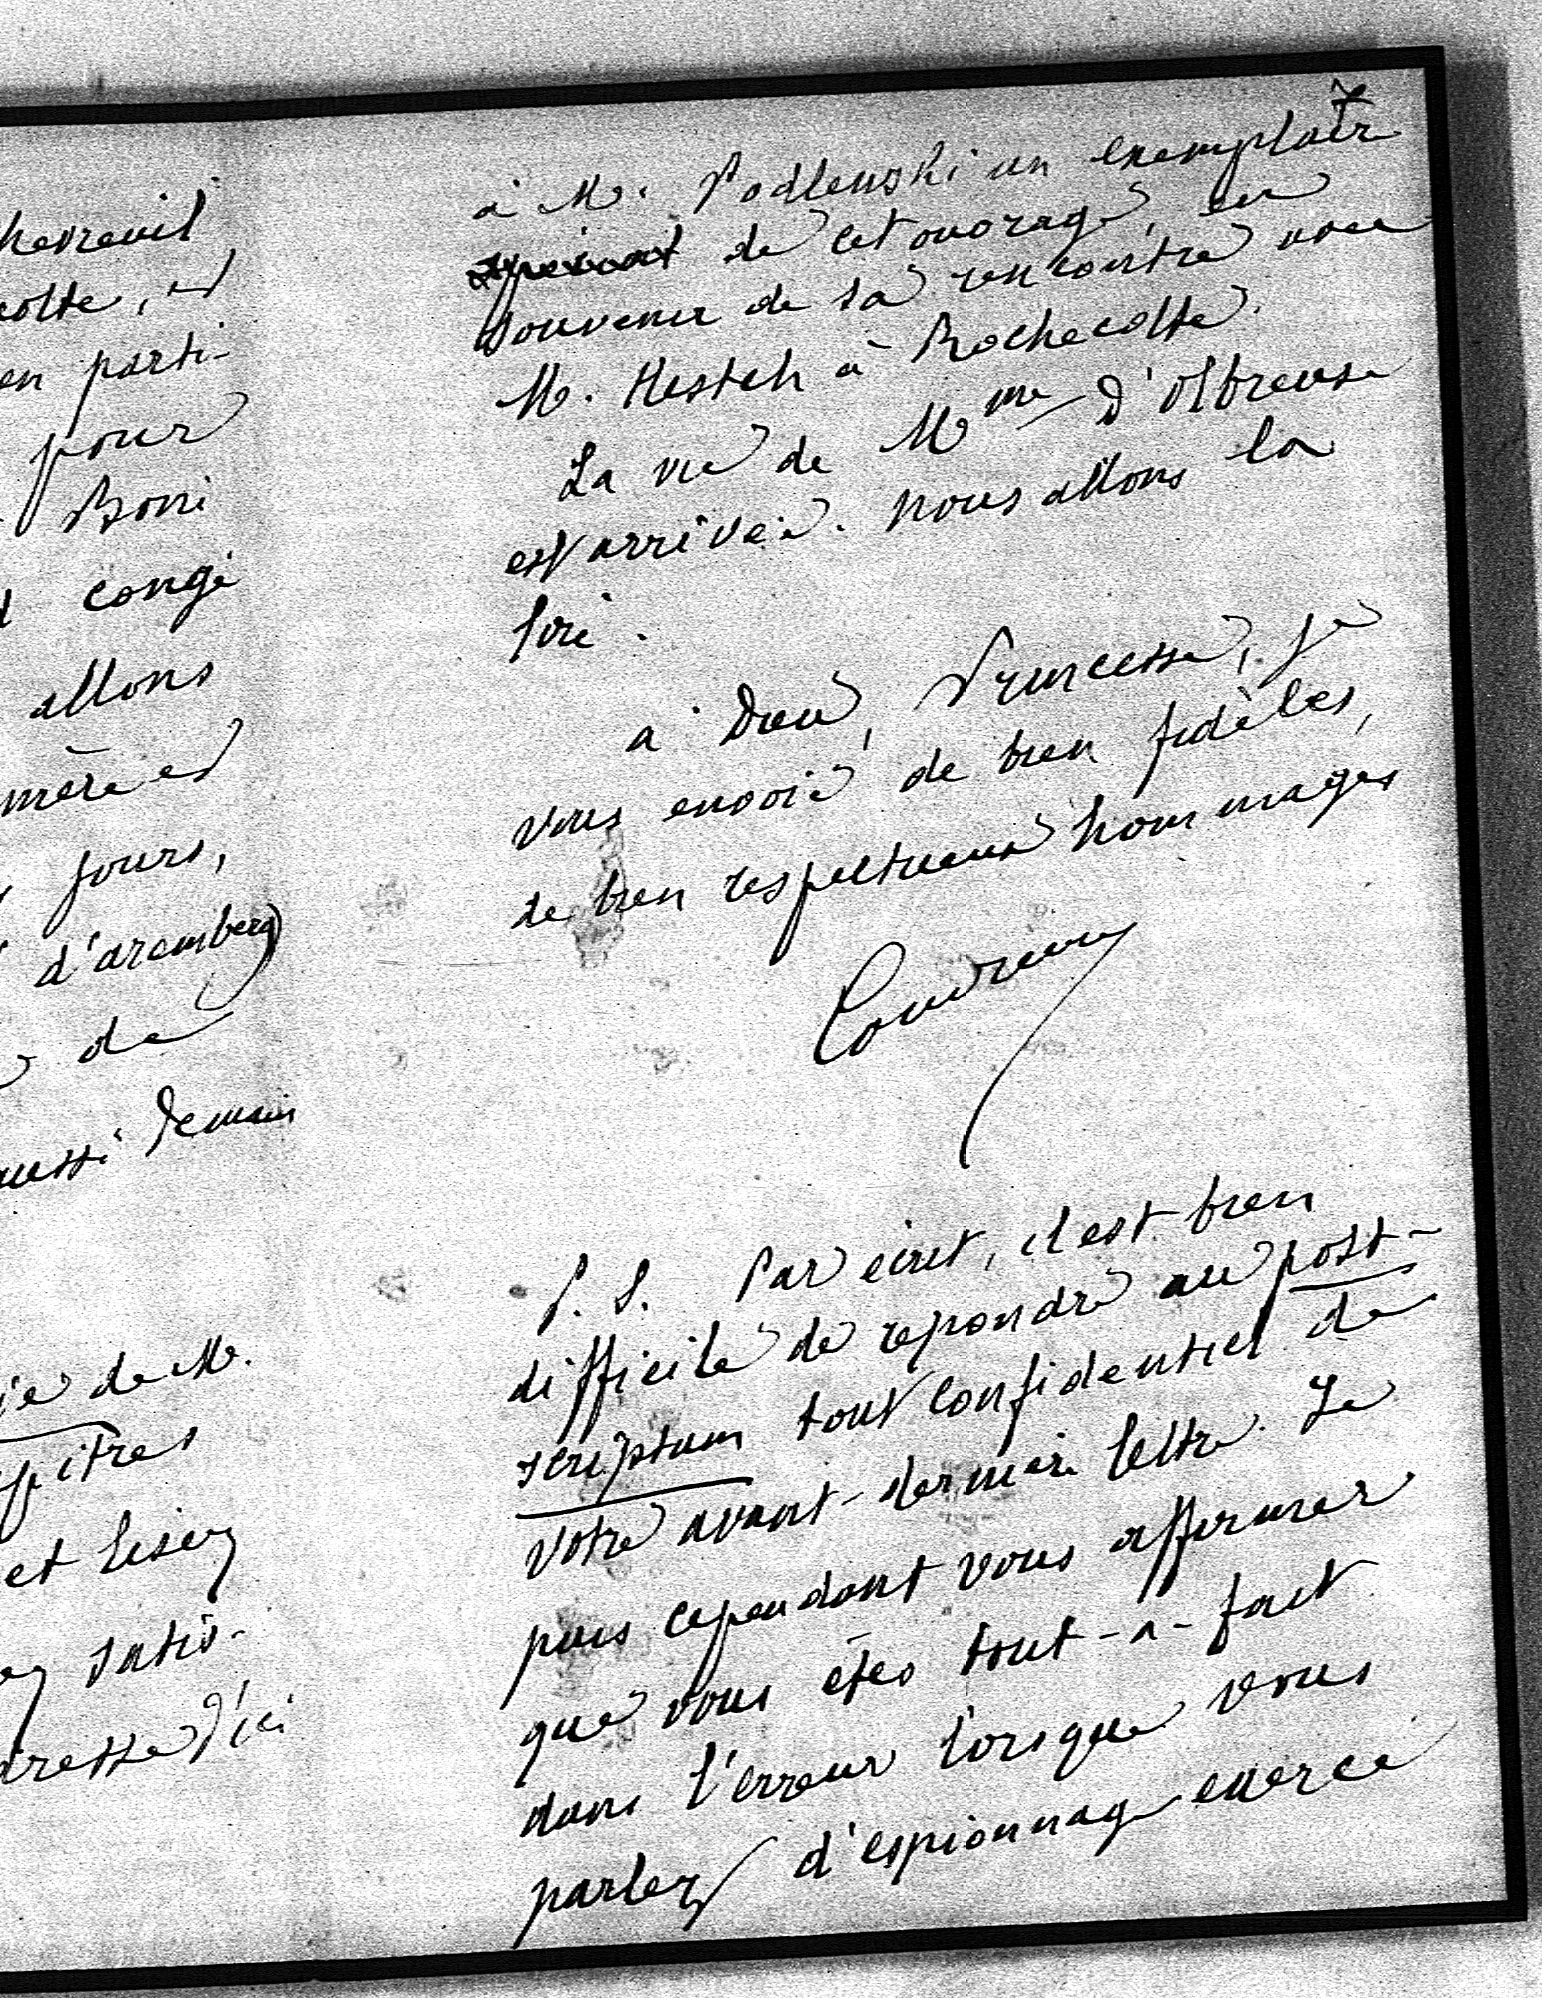 hevreuil
colte, et
en parti-
pour
Boni
congé
allons
mère et
jours,
d'aremberg)
de
aussi demain
de M.
pitres
et lisez
satis-
d'ici
7
à M. Podlenski un exemplaire
de cet ouvrage, en
souvenir de sa rencontre avec
M. Hesteh à Rochecotte.
La vie de Mme D'Olbreuse
est arrivée. nous allons la
lire.
a Dieu, Princesse, je
vous envoie de bien fidèles,
de bien respectueux hommages
P. S. Par écrit, il est bien
difficile de repondre au post-
scriptum tout confidentiel de
votre avant-dernière lettre. Je
puis cependant vous affirmer
que vous êtes tout-a-fait
dans l'erreur lorsque vous
parlez d'espionnage exercé